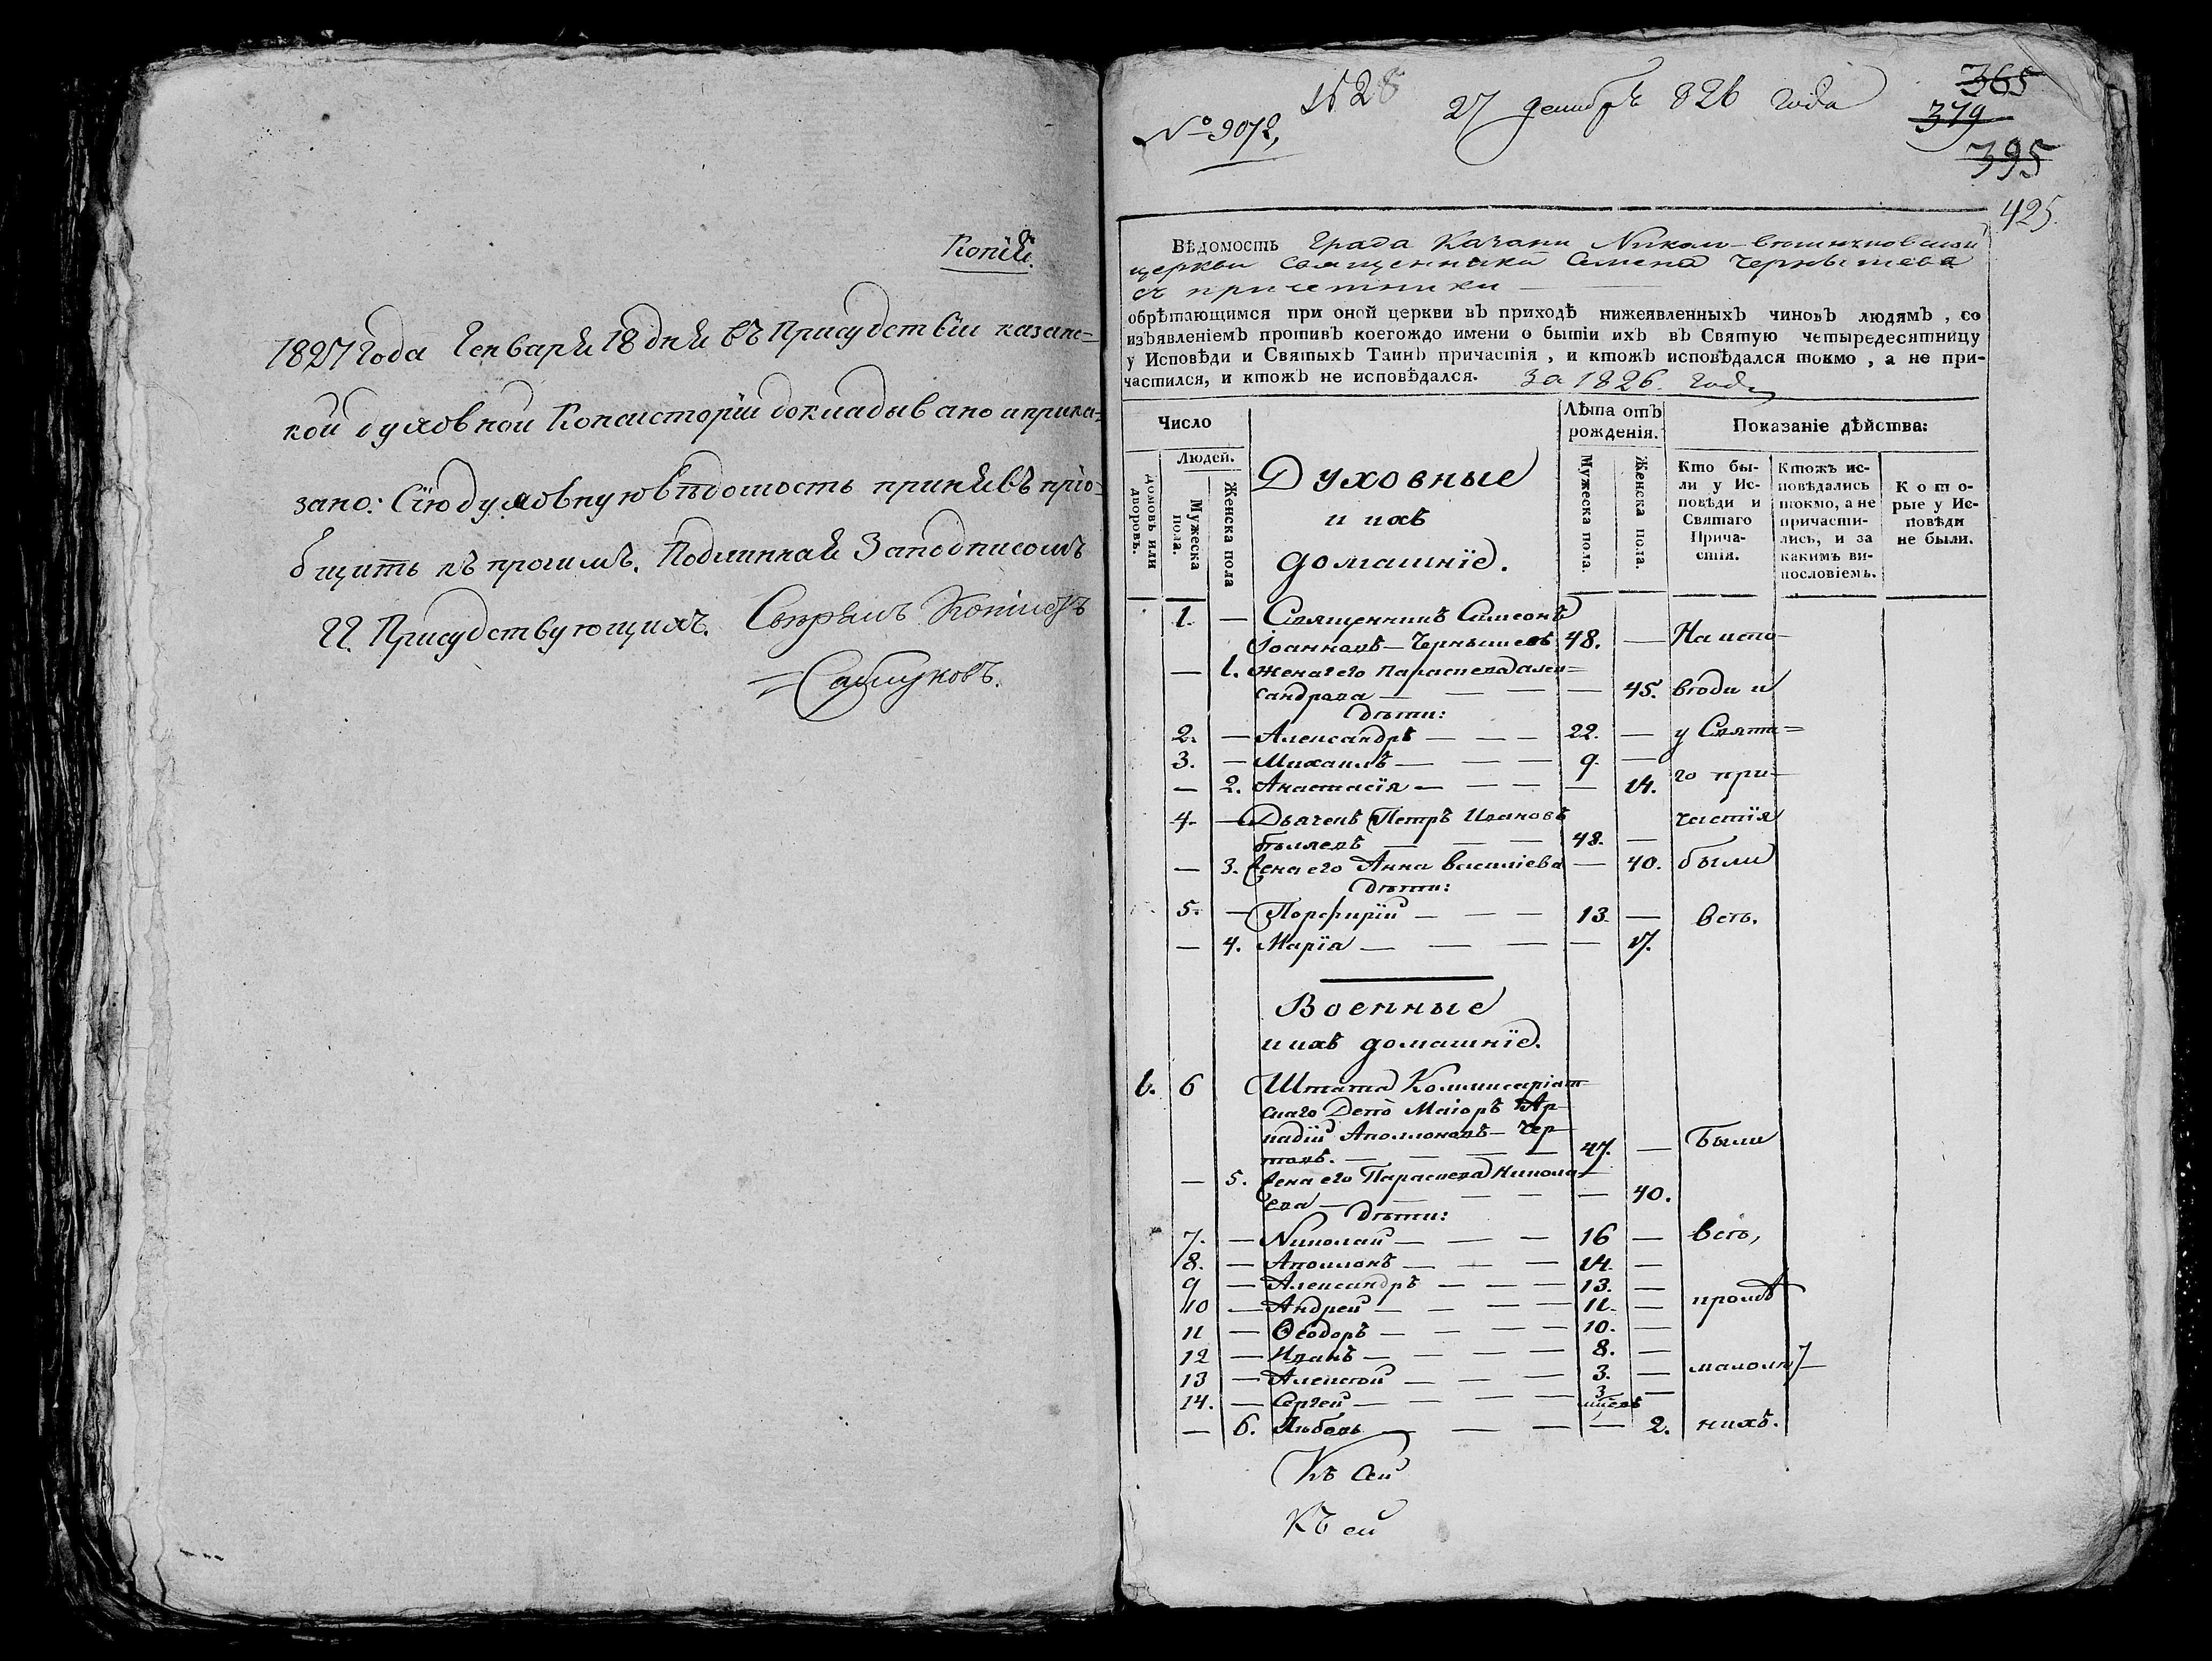 Копія.
1827 года Генваря 18 дня въ Присудствіи казанс=
кой духовной Консисторіи докладывано и прика=
зано: Сію духовную вѣдомость принявъ пріо=
бщить къ прочимъ. Подлинная За подписомъ
ГГ. Присудствующихъ. Свѣрялъ Копіистъ
365
№ 28 27 декабрѣ 826 года
379
№ 9072,
395
425.
Вѣдомость града Казани Николо-
церкви священника Симена Чернышева
съ причетники
обрѣтающимся при оной церкви въ приходѣ нижеявленныхъ чиновъ людямъ, со
изъявленіемъ противъ коегождо имени о бытіи ихъ въ Святую четыредесятницу
у Исповѣди и Святыхъ Таинъ причастія, и ктожъ исповѣдался токмо, а не при-
частился, и ктожъ не исповѣдался. За 1826. годъ
Число
Лѣта отъ рожденія.
Показаніе дѣйства:
Людей.
домовъ или дворовъ.
Мужеска пола.
Женска пола
Духовные
и ихъ
домашніе.
Мужеска пола.
Женска пола.
Кто бы-
ли у Ис-
повѣди и
Святаго
Прича-
стія.
Ктожъ ис-
повѣдались
токмо, а не
причасти-
лись, и за
какимъ ви-
пословіемъ.
Кото-
рые у Ис-
повѣди
не были.
1. — Священникъ Симеонъ
Іоанновъ — Чернышевъ 48. — На испо-
— 1. жена его Параскева Алек=
сандрова — — — — 45. вѣди и
дѣти:
2. — Александръ — — — 22. — у Свята=
3. — Михаилъ — — — 9. —
го при-
— 2. Анастасія — — — — 14.
4. — Дьячекъ Петръ Ивановъ частія
48. —
— 3. Жена его Анна Васильева — 40. были
дѣти:
5. — Порфирій — — — 13. — всѣ.
— 4. Марія — — — — 17.
Военные
и ихъ домашніе.
1. 6 Штата Коммисаріат-
скаго Депо Маіоръ Ар-
кадій Аполлоновъ — Чер-
товъ. — — — — 47. — Были
— 5. Жена его Параскева Никола-
ева — — — — 40.
дѣти:
7. — Николай — — — 16 — всѣ,
8. — Аполлонъ — — — 14. —
9 — Александръ — — — 13. —
10 — Андрей — — — 11. — кромѣ
11 — Ѳеодоръ — — — 10. —
12 — Иванъ — — — 8. —
13 — Алексѣй — — — 3. — малолѣт-
14. — Сергей — — — 3 мѣсяцъ —
— 6. Любовь — — — — 2. нихъ.
Къ сей
Къ сей